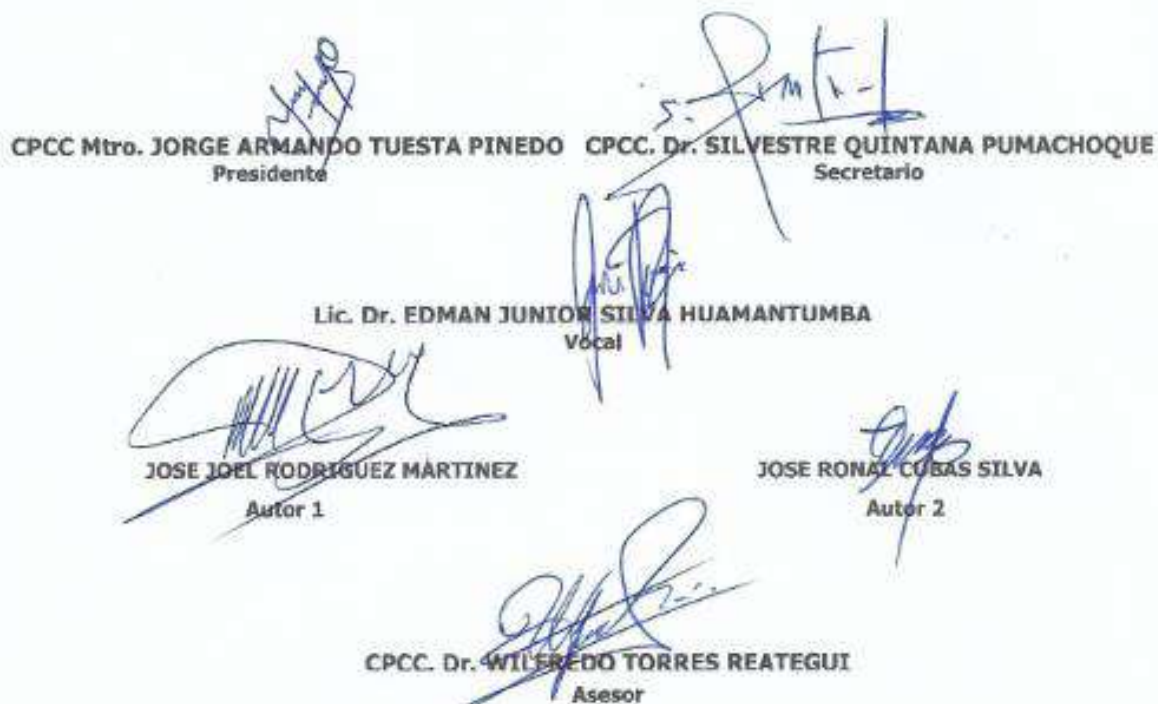 CPCC Mtro. JORGE ARMANDO TUESTA PINEDO CPCC. Dr. SILVESTRE QUINTANA PUMACHOQUE
Presidente Secretario
Lic. Dr. EDMAN JUNIOR SILVA HUAMANTUMBA
Vocal
JOSE JOEL RODRIGUEZ MARTINEZ JOSE RONAL CUBAS SILVA
Autor 1 Autor 2
CPCC. Dr. WILFREDO TORRES REATEGUI
Asesor